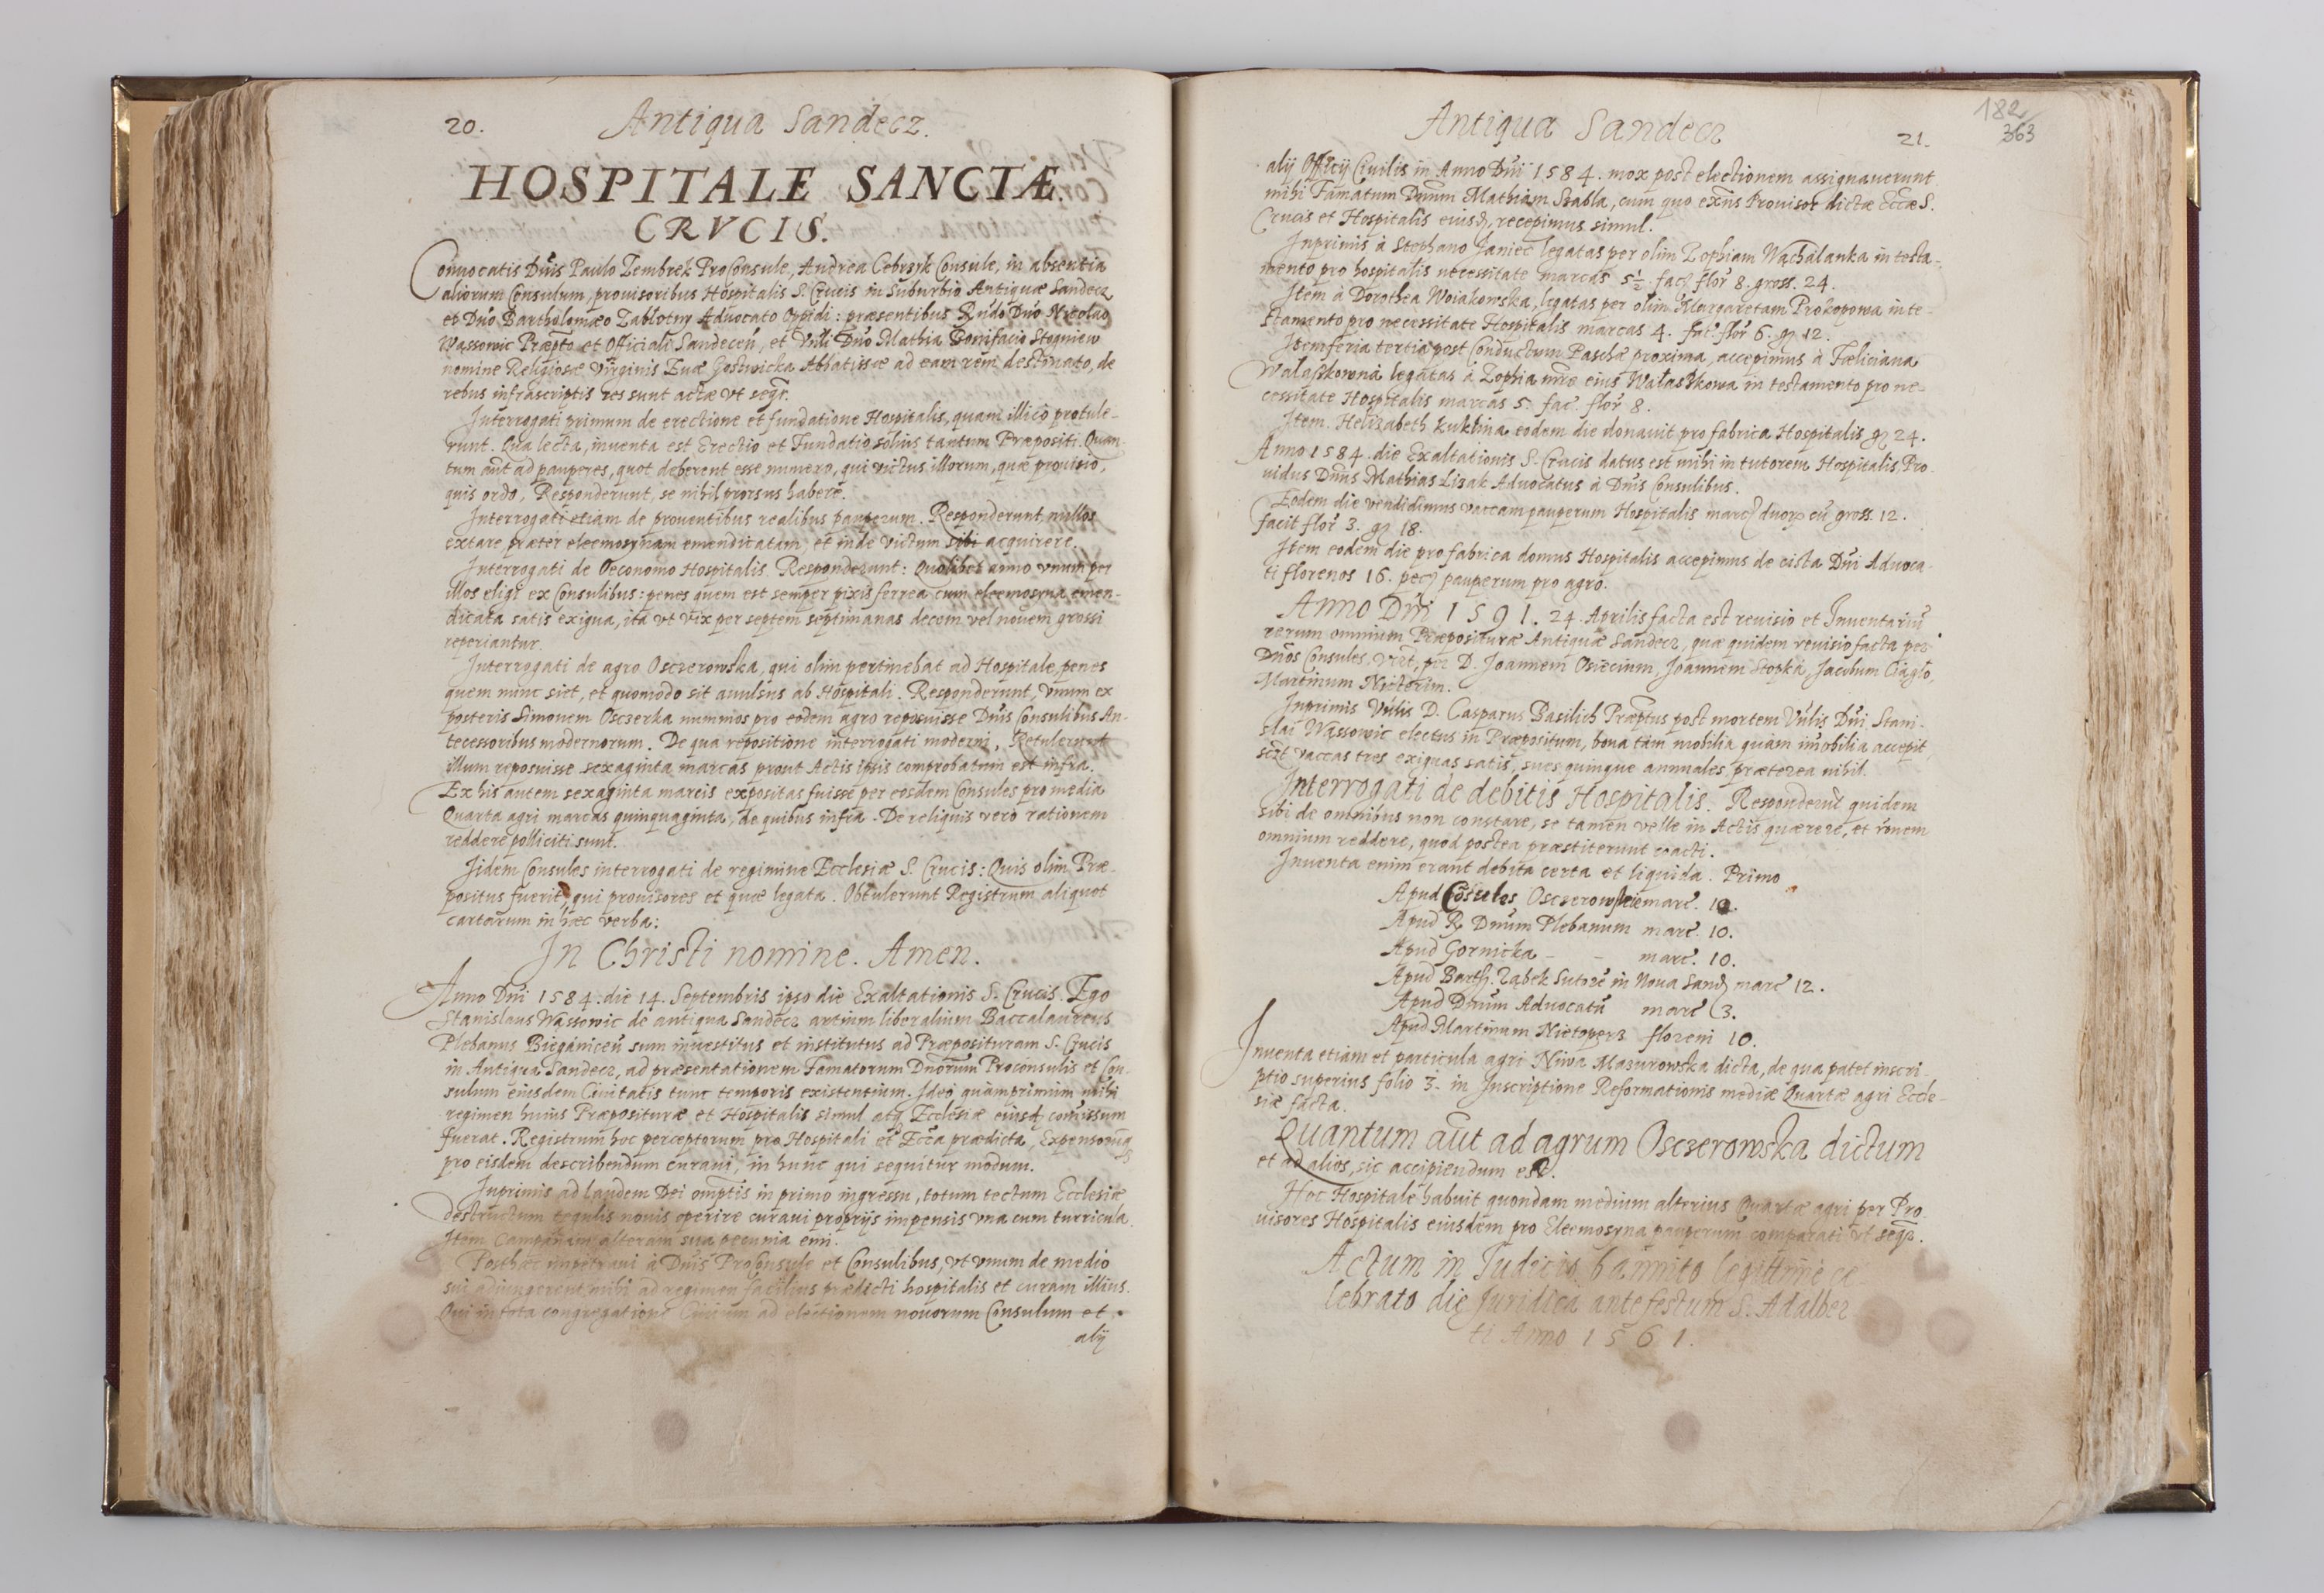 20. Antiqua Sandecz.
HOSPITALE SANCTÆ
CRVCIS.
Conuocatis Dñis Paulo Zembrek ProConsule, Andrea Cebrzyk Consule, in absentia
aliorum Consulum, prouisoribus Hospitalis S. Crucis in Suburbio Antiquæ Sandecz
et Dño Bartholomæo Zablotny Aduocato Oppidi: præsentibus Rñdo Dño Nicolao
Wassowic Præpto et Officiali Sandeceñ, et Vñli Dño Mathia Bonifacio Stogniew
nomine Religiosæ Virginis Euæ Gostwicka Abbatissæ ad eam rem destinato, de
rebus infrascriptis res sunt actæ vt seqr.
Interrogati primum de erectione et fundatione Hospitalis, quam illico protule-
runt. Qua lecta, inuenta est Erectio et Fundatio solius tantum Præpositi. Quan-
tum aũt ad pauperes, quot deberent esse numero, qui victus illorum, quæ prouisio,
quis ordo, Responderunt, se nihil prorsus habere.
Interrogati etiam de prouentibus realibus pauperum. Responderunt nullos
extare præter eleemosynam emendicatam, et inde victum sibi acquirere.
Interrogati de Oeconomo Hospitalis. Responderunt: Quolibet anno vnum per
illos eligi ex Consulibus: penes quem est semper pixis ferrea cum eleemosyna emen-
dicata satis exigua, ita vt vix per septem septimanas decem vel nouem grossi
reperiantur.
Interrogati de agro Osczerowska, qui olim pertinebat ad Hospitale, penes
quem nunc siet, et quomodo sit auulsus ab Hospitali. Responderunt, vnum ex
posteris Simonem Osczerka nummos pro eodem agro reposuisse Dñis Consulibus An-
tecessoribus modernorum. De qua repositione interrogati moderni, Retulerunt
illum reposuisse sexaginta marcas prout Actis ipsis comprobatum est infra.
Ex his autem sexaginta marcis expositas fuisse per eosdem Consules pro media
Quarta agri marcas quinquaginta, de quibus infra. De reliquis vero rationem
reddere polliciti sunt.
Jidem Consules interrogati de regimine Ecclesiæ S. Crucis: Quis olim Præ-
positus fuerit, qui prouisores et quæ legata. Obtulerunt Registrum aliquot
cartarum in hæc verba:
In Christi nomine. Amen.
Anno Dñi 1584. die 14. Septembris ipso die Exaltationis S. Crucis. Ego
Stanislaus Wassowic de antiqua Sandecz artium liberalium Baccalaureus
Plebanus Biegániceñ sum inuestitus et institutus ad Præposituram S. Crucis
in Antiqua Sandecz, ad præsentationem Famatorum Dnorum Proconsulis et Con-
sulum eiusdem Ciuitatis tunc temporis existentium. Ideo quamprimum mihi
regimen huius Præposituræ et Hospitalis simul atq Ecclesiæ eiusd comissum
fuerat. Registrum hoc perceptorum pro Hospitali et Ecca prædicta, Expensorumq
pro eisdem describendum curaui, in hunc qui sequitur modum.
Inprimis ad laudem Dei omptis in primo ingressu, totum tectum Ecclesiæ
destructum tegulis nouis operire curaui proprijs impensis vna cum turricula.
Item Campanam alteram sua pecunia emi.
Posthæc impetraui à Dñis ProConsule et Consulibus, vt vnum de medio
sui adiungerent mihi ad regimen facilius prædicti hospitalis et curam illius.
Qui in tota congregatione Ciuium ad electionem nouorum Consulum et
alij
Antiqua Sandecz 21.
182
363
alij Officij Ciuilis in Anno Dñi 1584. mox post electionem assignauerunt
mihi Famatum Dñum Mathiam Szabla, cum quo exñs Prouisor dictæ Eccæ S.
Crucis et Hospitalis eiusd, recepimus simul.
Inprimis à Stephano Janiec legatas per olim Zophiam Wąchalanka in testa-
mento pro hospitalis necessitate marcas 5½ fac flor 8. gross. 24.
Item à Dorothea Woiakowska, legatas per olim Margaretam Prokopowa in te-
stamento pro necessitate Hospitalis marcas 4. fac. flor 6. gr 12.
Item feria tertia post Conductum Paschæ proxima, accepimus à Fæliciana
Walaszkowna legatas à Zophia mre eius Walaszkowa in testamento pro ne-
cessitate Hospitalis marcas 5. fac. flor 8.
Item. Helizabeth Kuklina eodem die donauit pro fabrica Hospitalis gr 24.
Anno 1584. die Exaltationis S. Crucis datus est mihi in tutorem Hospitalis Pro-
uidus Dñus Mathias Lizak Aduocatus à Dñis Consulibus.
Eodem die vendidimus vaccam pauperum Hospitalis marc duor cũ gross. 12.
facit flor 3. gr 18.
Item eodem die pro fabrica domus Hospitalis accepimus de cista Dñi Aduoca-
ti florenos 16. pec pauperum pro agro.
Anno Dñi 1591. 24. Aprilis facta est reuisio et Inuentariũ
rerum omnium Præposituræ Antiquæ Sandecz, quæ quidem reuisio facta per
Dños Consules, vizt, per D. Joannem Osiecium, Joannem Stopka, Jacobum Ciągło,
Martinum Nietorim.
Inprimis Vñlis D. Casparus Basilich Præptus post mortem Vñlis Dñi Stani-
slai Wassowic electus in Præpositum, bona tàm mobilia quàm imobilia accepit
sczt vaccas tres exiguas satis, sues quinque annuales, præterea nihil.
Interrogati de debitis Hospitalis. Responderũt quidem
sibi de omnibus non constare, se tamen velle in Actis quærere, et rõnem
omnium reddere, quod postea præstiterunt coacti.
Inuenta enim erant debita certa et liquida. Primo
Apud Cõsules Osczerowskie marc. 10.
Apud R. Dnum Plebanum marc. 10.
Apud Gornicka - - marc. 10.
Apud Barth. Ząbek Sutorẽ in Noua Sand marc 12.
Apud Dnum Aduocatũ marc 3.
Apud Martinum Nietoperz floreni 10.
Inuenta etiam et particula agri Niwa Mazurowska dicta, de qua patet inscri-
ptio superius folio 3. in Inscriptione Reformationis mediæ Quartæ agri Eccle-
siæ facta.
Quantum aũt ad agrum Osczerowska dictum
et ad alios, sic accipiendum est.
Hoc Hospitale habuit quondam medium alterius Quartæ agri per Pro-
uisores Hospitalis eiusdem pro Eleemosyna pauperum comparati vt seqr.
Actum in Judicio bannito legittime ce
lebrato die Juridica ante festum S. Adalber
ti Anno 1561.